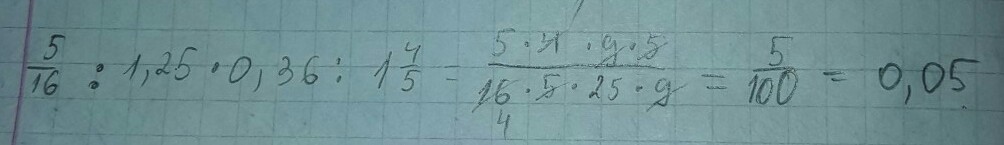 5/16 : 1,25 · 0,36 : 1 4/5 = (5 · 4 · 9 · 5)/(16 · 5 · 25 · 9) = 5/100 = 0,05
4